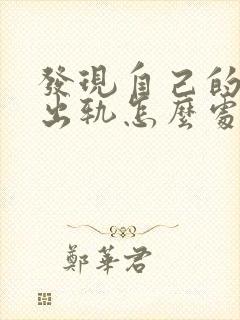 發現自己的
出轨怎麼處
鄭華君